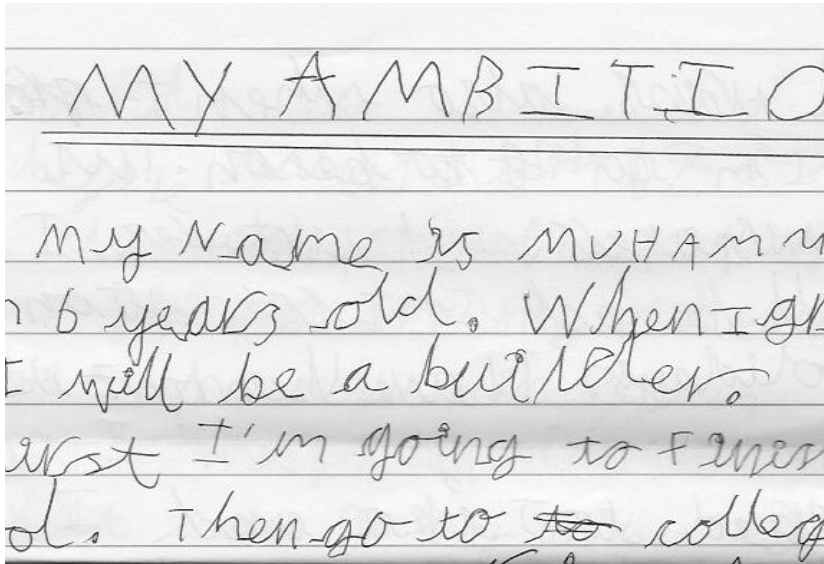 MY AMBITIO
My Name is MUHAMM
6 years old. When I gr
I will be a builder.
urst I'm going to Finis
ol. Then go to to colleg